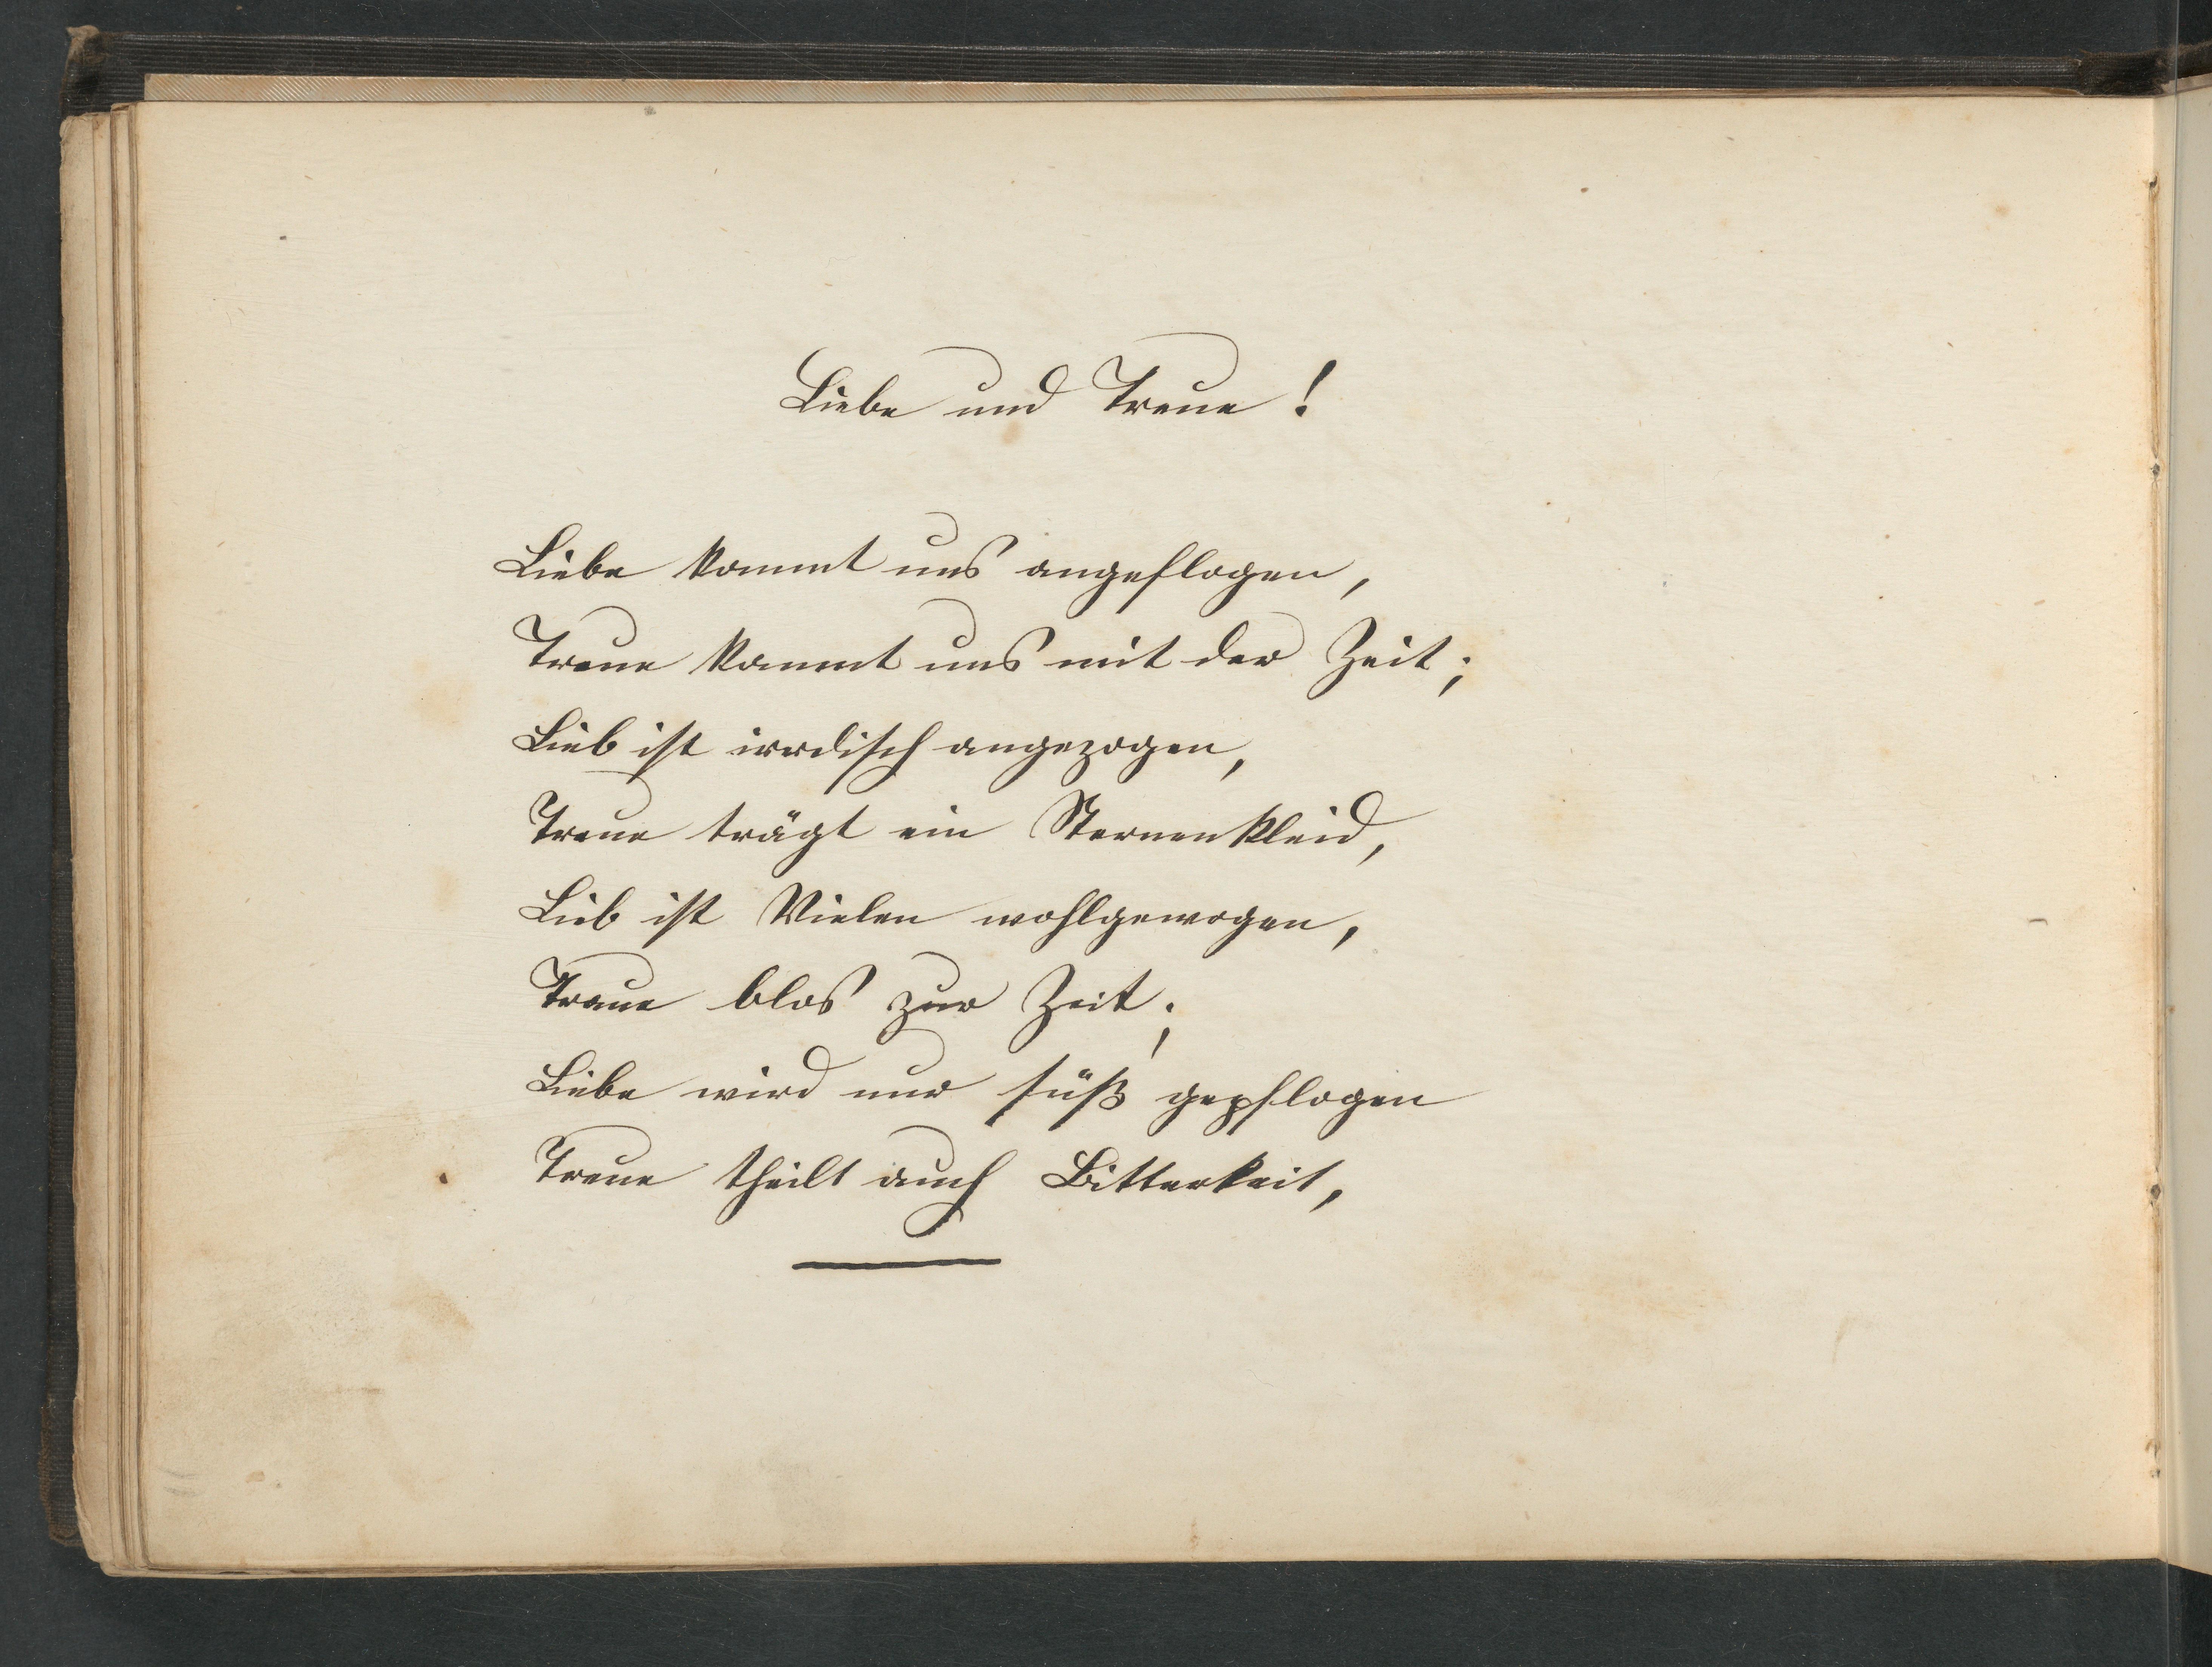 Liebe und Treue!
Liebe kommt uns angeflogen,
Treue kommt uns mit der Zeit;
Lieb ist irrdisch angezogen,
Treue trägt ein Sternenkleid,
Lieb ist Vielen wohlgewogen,
Treue blos zur Zeit;
Liebe wird nur süß gepflogen
Treue theilt auch Bitterkeit,